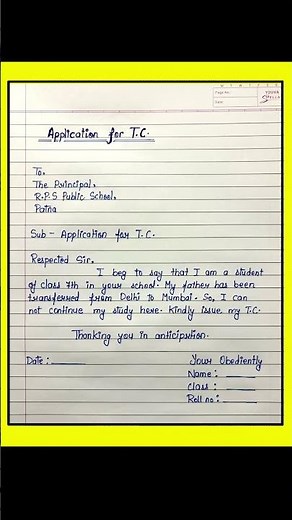 Page No.:
Date:
YOUVA
Application for T.C.
To,
The Principal,
R.P.S Public School,
Patna
Sub - Application for T.C.
Respected Sir,
I beg to say that I am a student
of class 7th in your school. My father has been
transferred from Delhi to Mumbai. So, I can
not continue my study here. Kindly issue my T.C.
Thanking you in anticipation.
Date :
Your Obediently
Name :
Class :
Roll no :